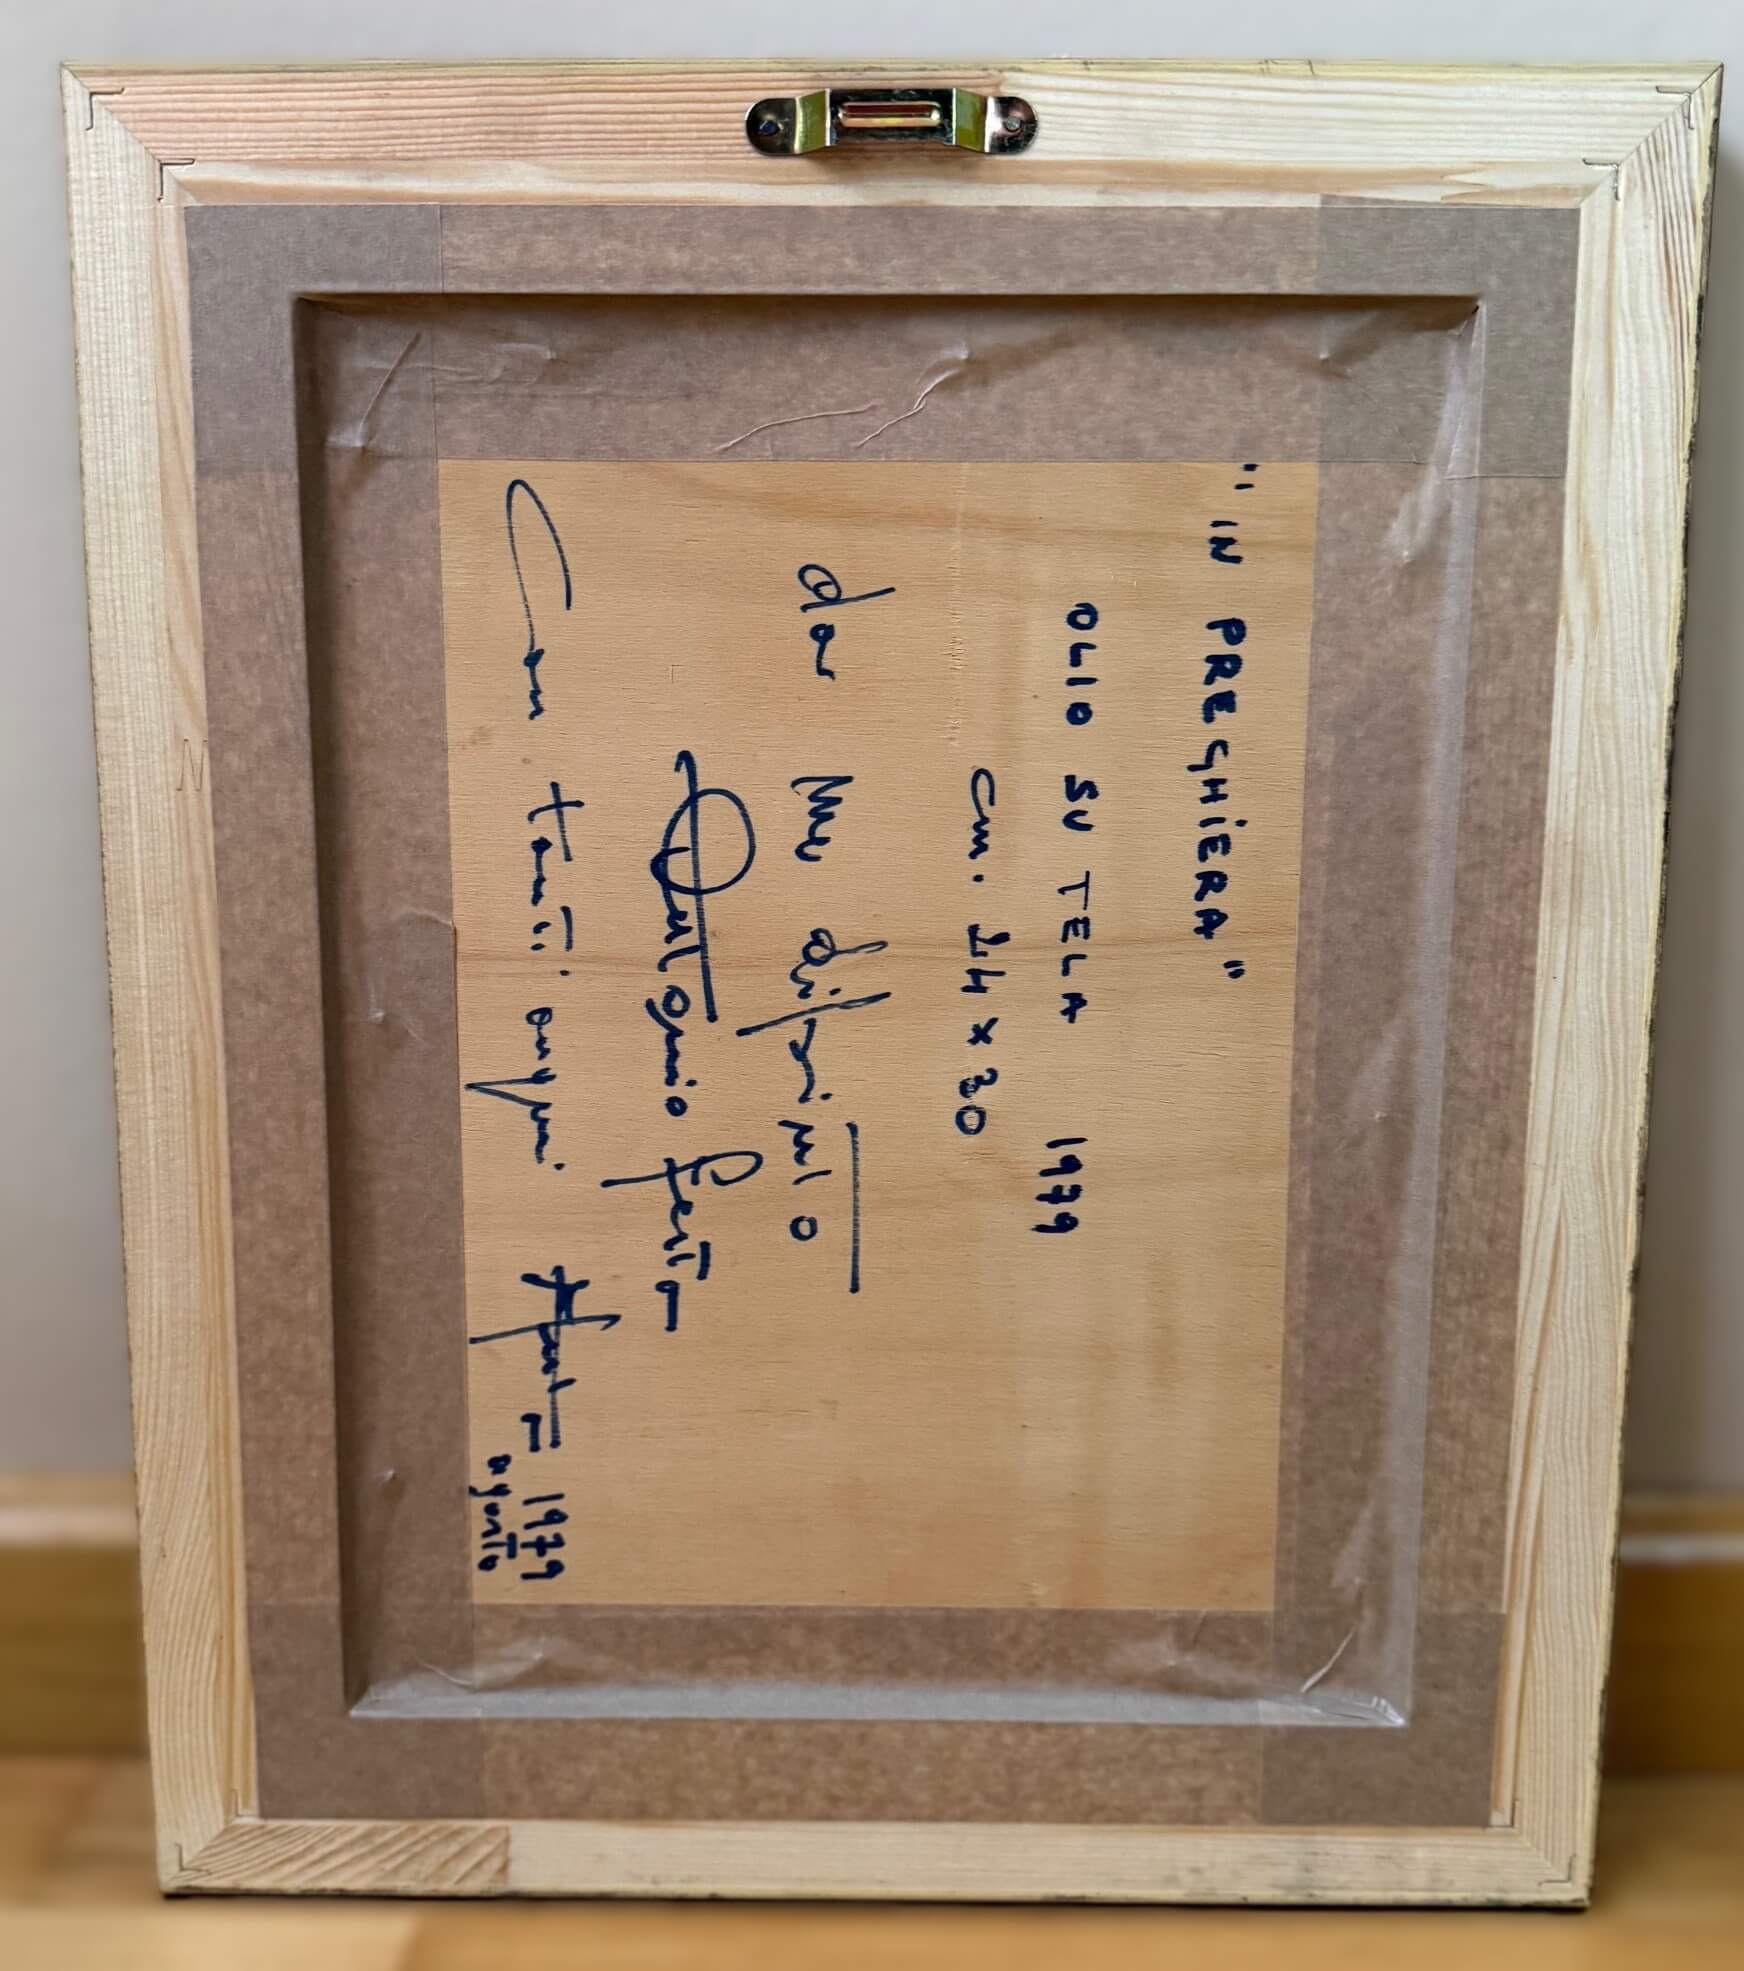 "IN PREGHIERA"
OLIO SU TELA 1979
cm. 24 x 30
da me dipinto
Con tanti auguri 1979
agosto